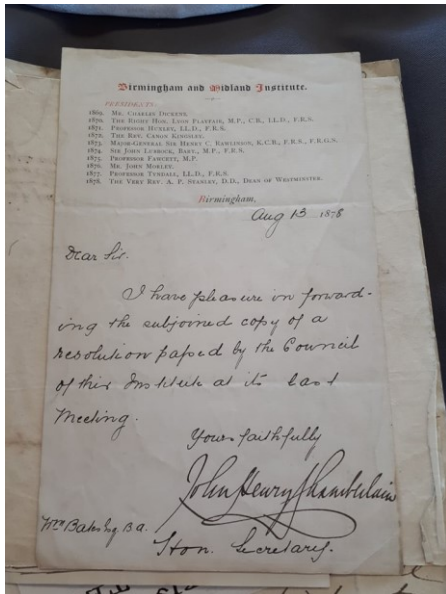 Birmingham and Midland Institute.
PRESIDENTS:
1869. MR. CHARLES DICKENS.
1870. THE RIGHT HON. LYON PLAYFAIR, M.P., C.B., LL.D., F.R.S.
1871. PROFESSOR HUXLEY, LL.D., F.R.S.
1872. THE REV. CANON KINGSLEY.
1873. MAJOR-GENERAL SIR HENRY C. RAWLINSON, K.C.B., F.R.S., F.R.G.S.
1874. SIR JOHN LUBBOCK, BART., M.P., F.R.S.
1875. PROFESSOR FAWCETT, M.P.
1876. MR. JOHN MORLEY.
1877. PROFESSOR TYNDALL, LL.D., F.R.S.
1878. THE VERY REV. A. P. STANLEY, D.D., DEAN OF WESTMINSTER.
Birmingham,
Aug 13 1878
Dear Sir.
I have pleasure in forward-
ing the subjoined copy of a
resolution passed by the Council
of this Institute at its last
Meeting.
Yours faithfully
John Henry Chamberlain
Wm Bates Esq B.a.
Hon. Secretary.